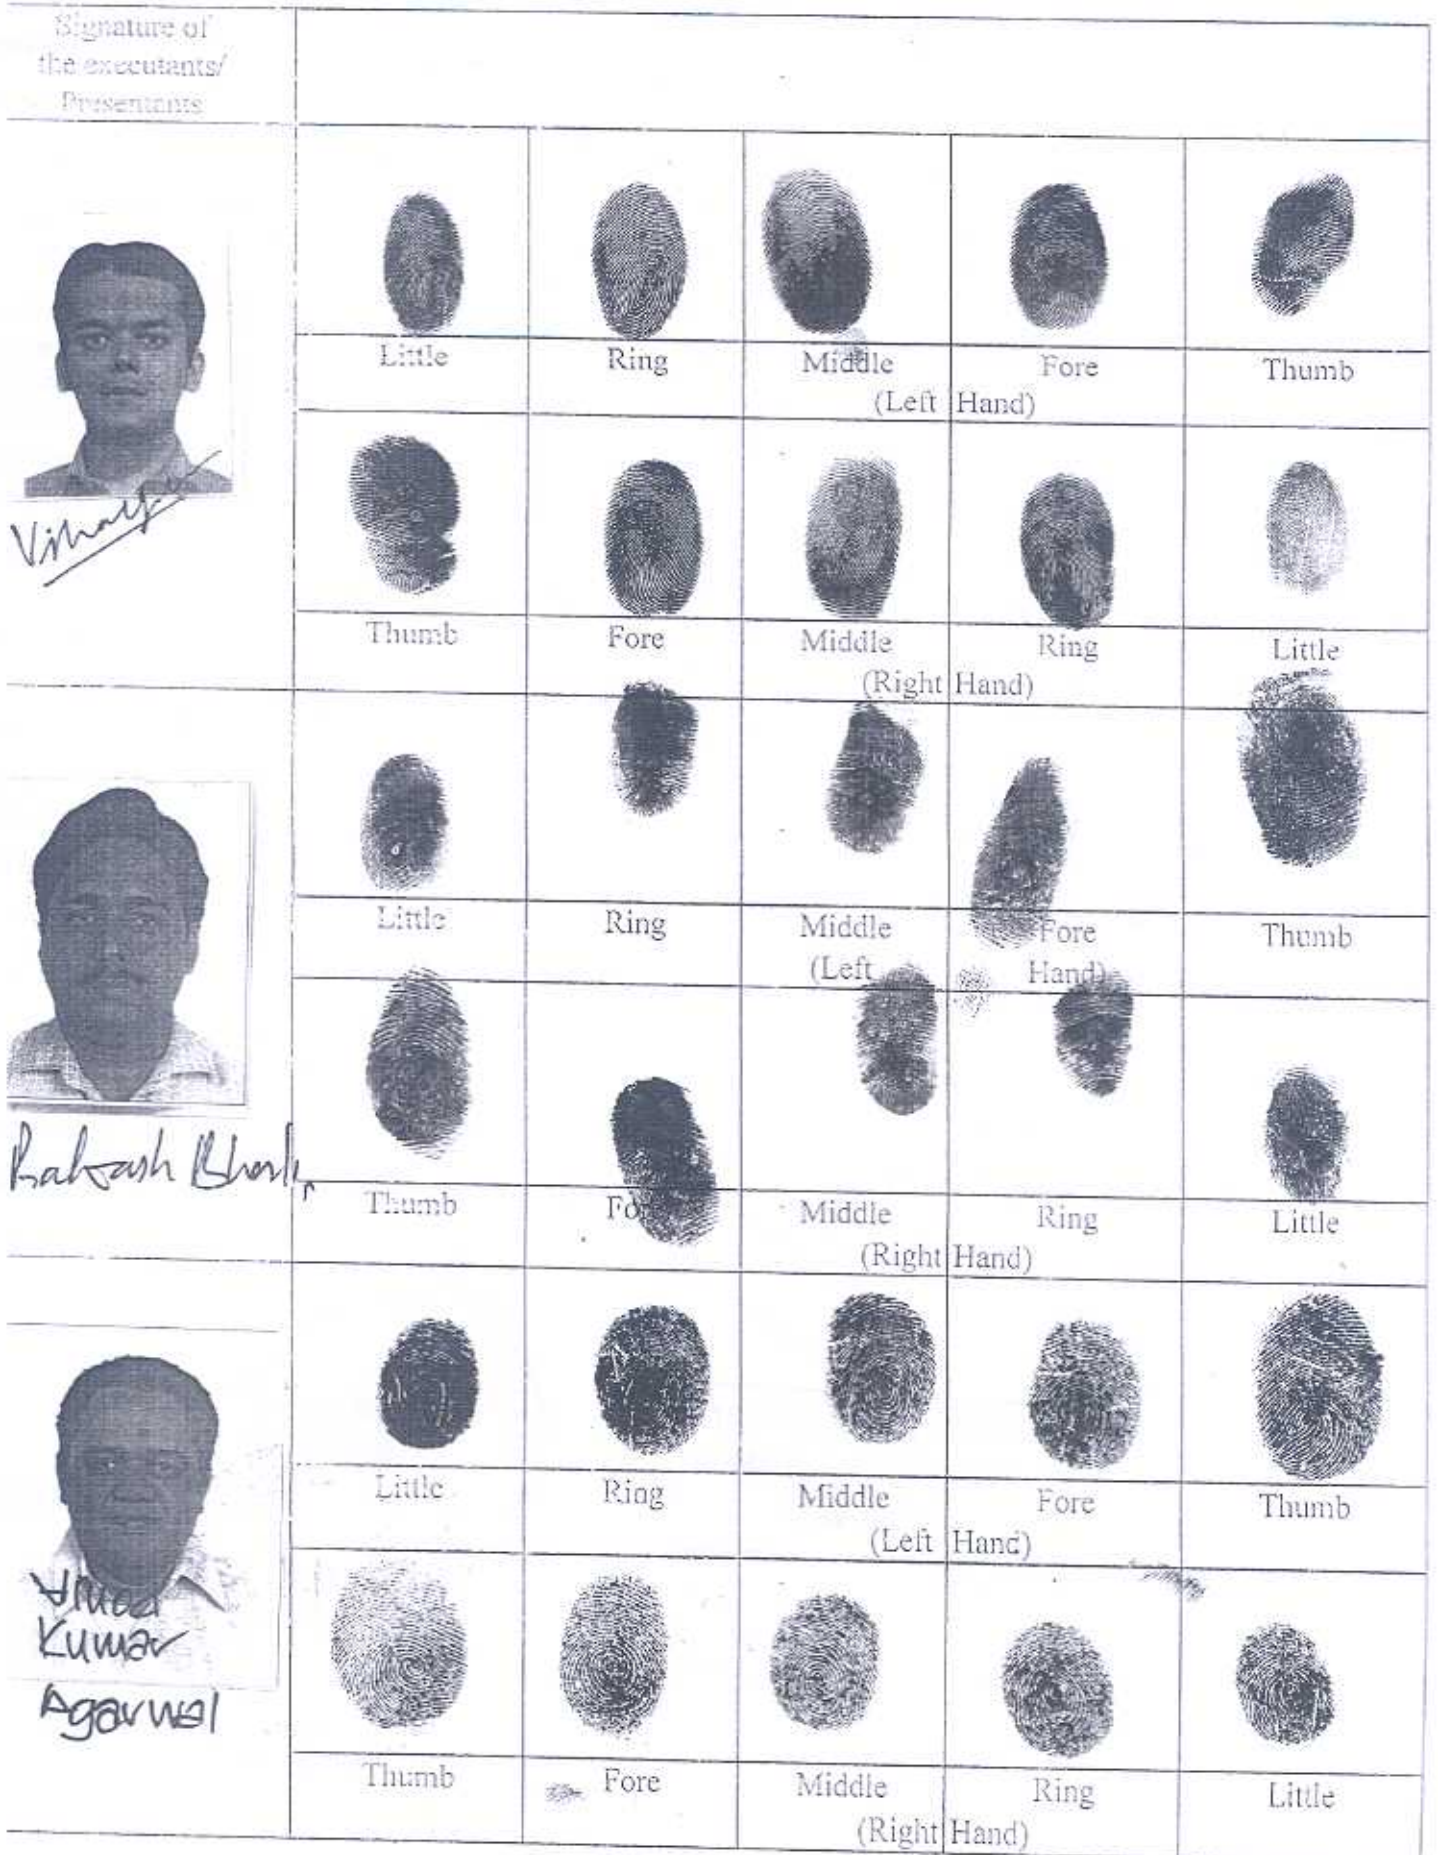 Signature of
the executants/
Presentants
Little Ring Middle Fore Thumb
(Left Hand)
Thumb Fore Middle Ring Little
(Right Hand)
Little Ring Middle Fore Thumb
(Left Hand)
Thumb Middle Ring Little
(Right Hand)
Little Ring Middle Fore Thumb
(Left Hand)
Vinod
Kumar
Agarwal
Thumb Fore Middle Ring Little
(Right Hand)